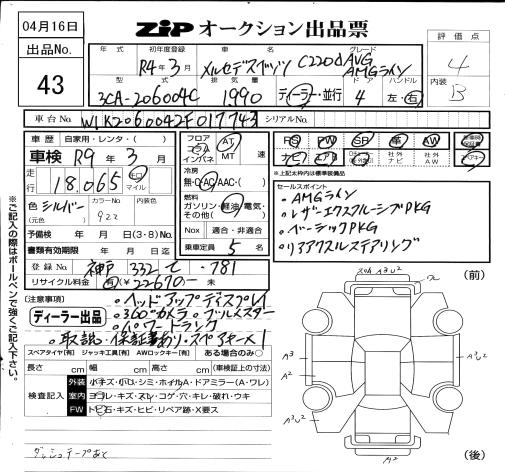 04月16日
出品No.
43
ZiP オークション出品票
評価点
4
内装
B
年式
初年度登録
車名
グレード
R4年3月
メルセデスベンツ
C220d AVG
AMGライン
型式
排気量
ドア
ハンドル
3CA-206004C
1990
ディーラー・並行
4
左・右
車台No.
W1K2060042F017743
シリアルNo.
車歴
自家用・レンタ・( )
車検 R9年3月
走行
18,065
キロ
マイル
色
シルバー
(元色)
カラーNo.
922
予備検 年 月 日(3・8)No.
書類有効期限 年 月 日迄
登録No.
神戸 332 て 781
リサイクル料金
有(¥22670-
フロア
コラム
インパネ
AT
MT
速
冷房
無・C・AC・AAC・( )
燃料
ガソリン・軽油・電気・
その他( )
Nox
適合・非適合
乗車定員 5 名
PS
PW
SR
革
AW
ナビ
エアB
社外
ナビ
社外
AW
※上記太枠内は標準装備品
セールスポイント
・AMGライン
・レザーエクスクルーシブPKG
・ベーシックPKG
・リアアクスルステアリング
(注意事項)
ディーラー出品
・ヘッドアップディスプレイ
・360°カメラ・ブルメスター
・パワートランク
・取説・保証書あり・スペアキー×1
スペアタイヤ[有] ジャッキ工具[有] AWロックキー[有] ある場合のみ○
長さ cm 幅 cm 高さ cm (車検証上の寸法)
検査記入
外装
小キズ・小凹・シミ・ホイルA・ドアミラー(A・ワレ)
室内
ヨゴレ・キズ・スレ・コゲ・穴・キレ・破れ・ウキ
FW
トビ石・キズ・ヒビ・リペア跡・X要ス
ダッシュテープあと
※ご記入の際はボールペンで強くご記入下さい。
(前)
A3
A2
A3U2
A3U2
A2
(後)